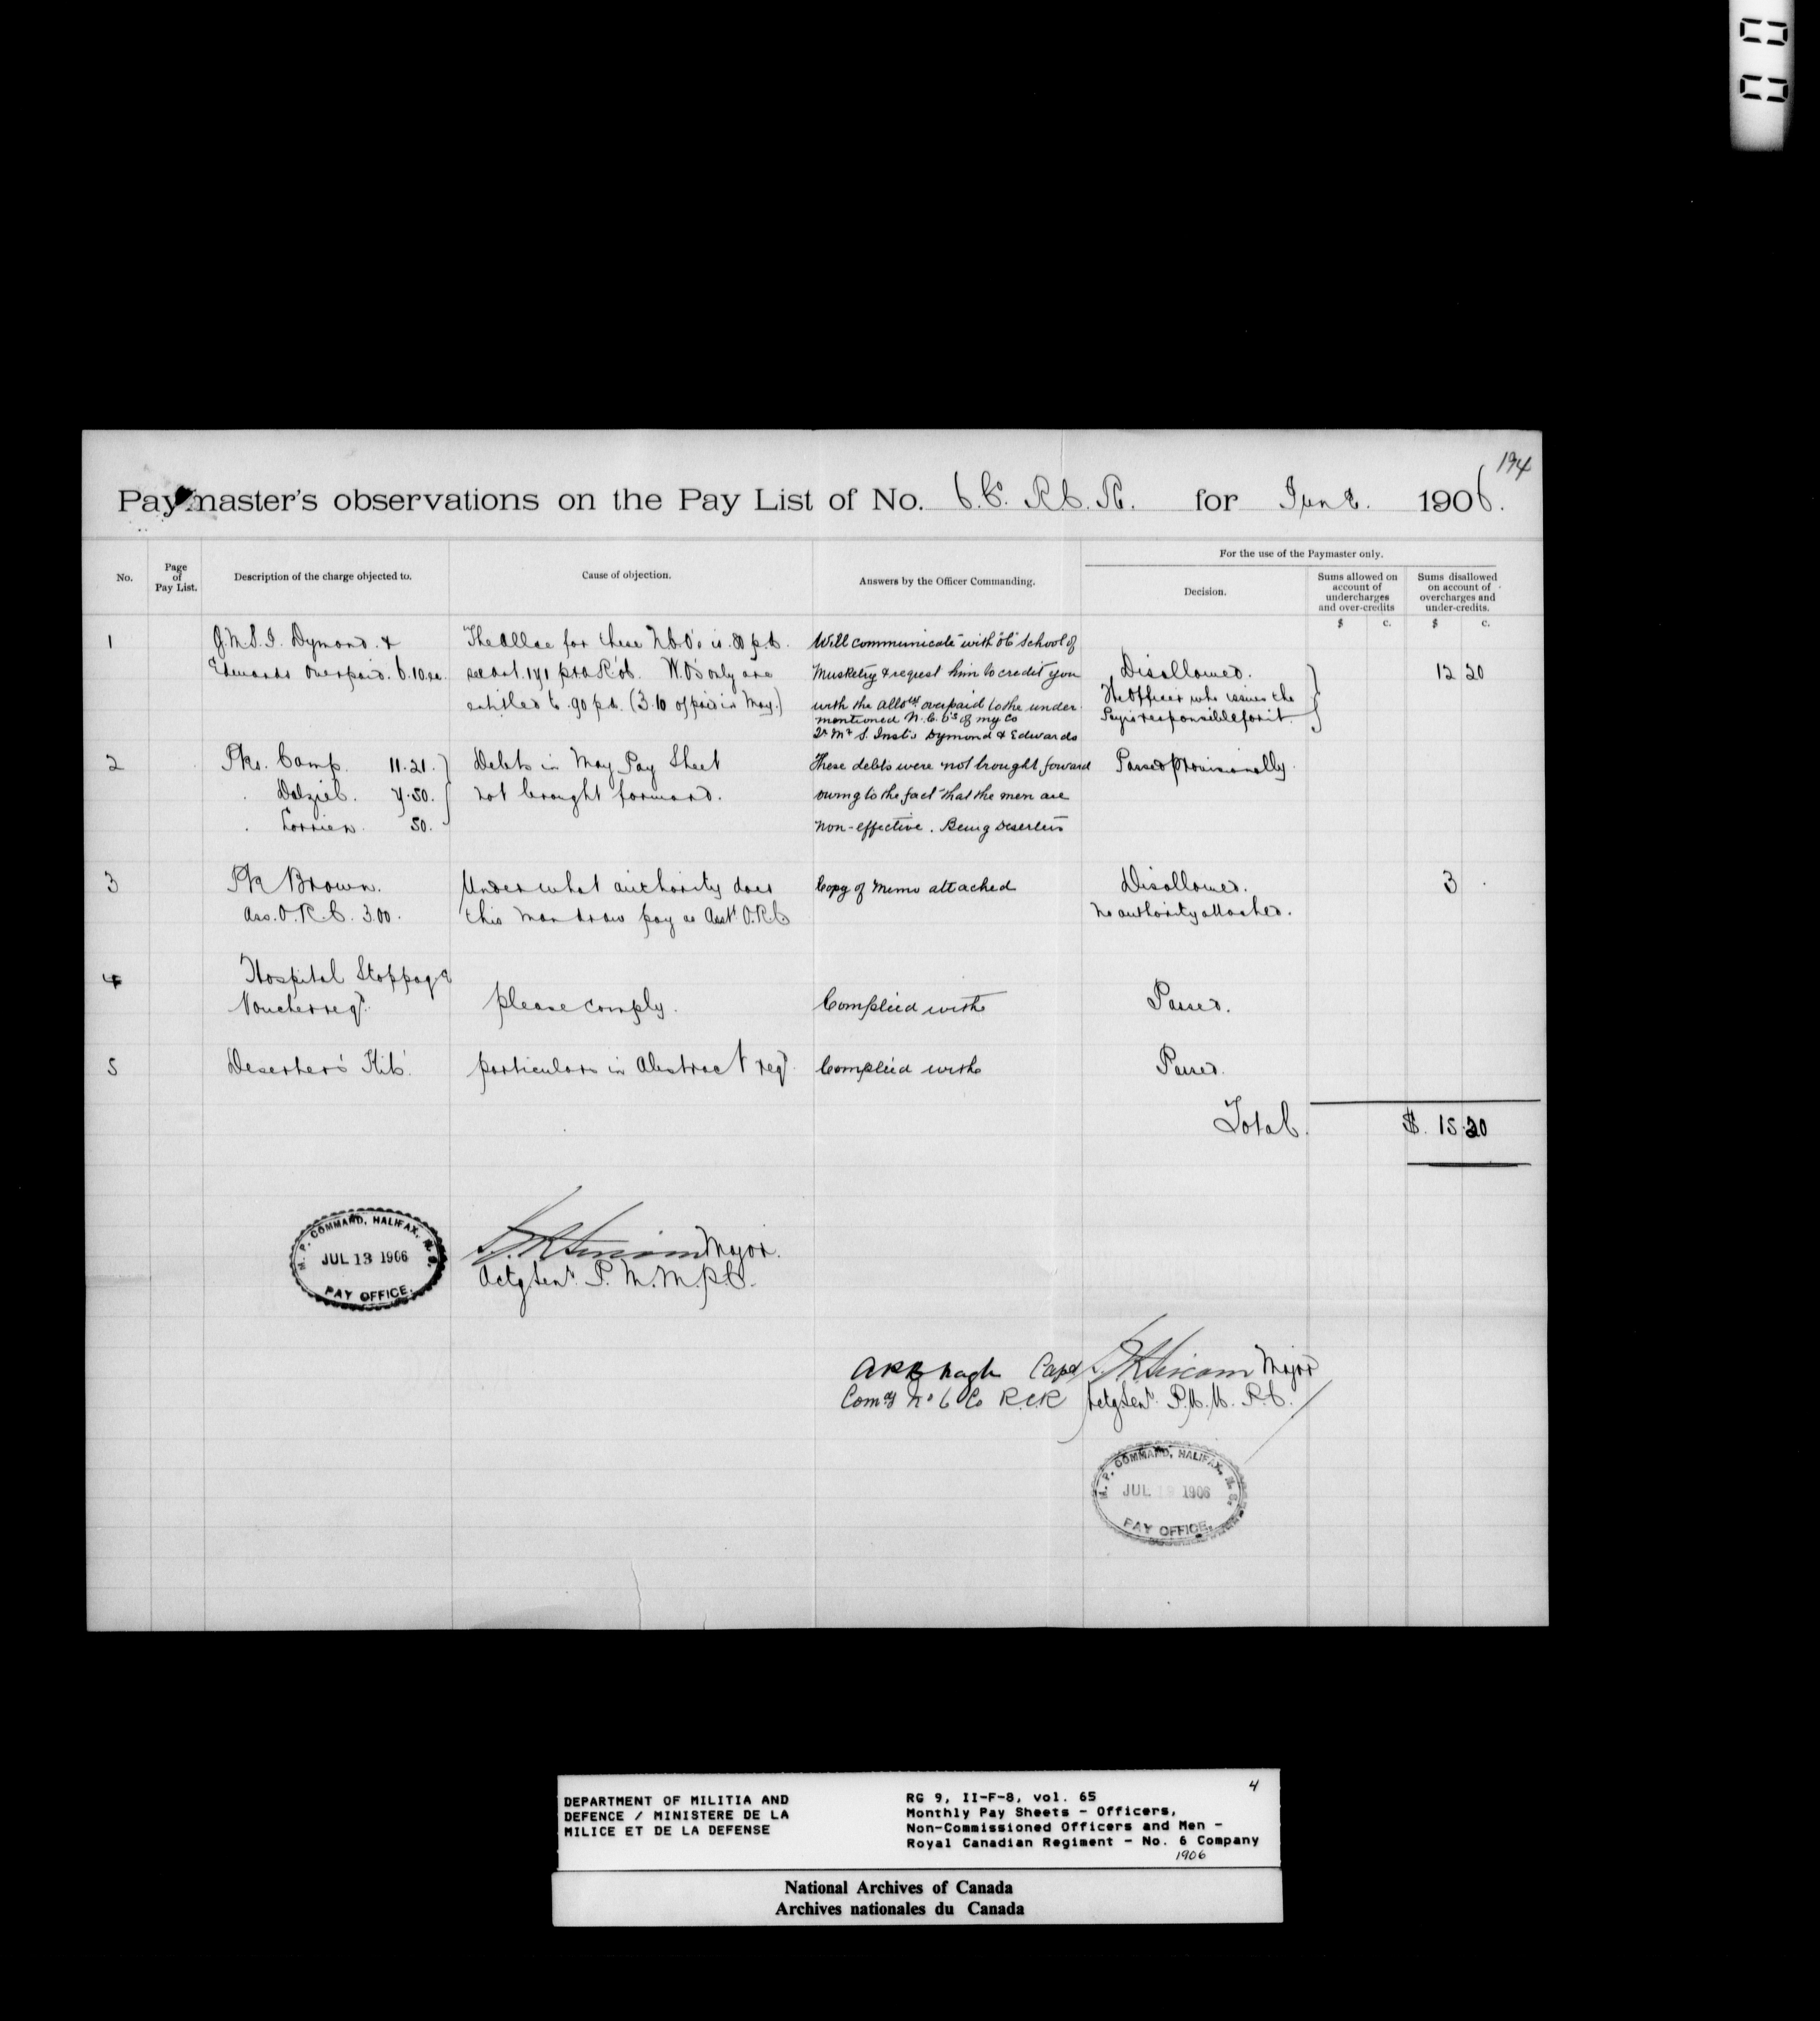 194
Paymaster's observations on the Pay List of No. 6 Co. R.C.R. for June 1906.
No.
Page of Pay List.
Description of the charge objected to.
Cause of objection.
Answers by the Officer Commanding.
For the use of the Paymaster only.
Decision.
Sums allowed on account of undercharges and over-credits
Sums disallowed on account of overcharges and under-credits.
$ c. $ c.
1
Q.M.S.I. Dymond &
Edwards overpaid. 6.10 ea.
The allce for these N.C.O's is .80 p.d.
see art. 171 P & A Reg. W.O's only are
entitled to .90 p.d. (3.10 o/paid in May.)
Will communicate with "OC" School of
Musketry & request him to credit you
with the Allow overpaid to the under
mentioned N.C.O's of my Co
Qr Mr S. Inst's Dymond & Edwards
Disallowed.
The Officer who issues the
Pay is responsible for it.
12 20
2
Pts. Camp. 11.21.
" Dalziel. 7.50.
" Lorrien. 50.
Debts in May Pay Sheet
not brought forward.
These debts were not brought forward
owing to the fact that the men are
non-effective. Being Deserters
Passed provisionally.
3
Pte Brown.
Ass. O.R.C. 3.00.
Under what authority does
this man draw pay as Asst. O.R.C
Copy of memo attached
Disallowed.
no authority attached.
3
4
Hospital Stoppage
Voucher reqd.
please comply.
Complied with
Passed.
5
Deserter's Kits.
particulars in Abstract reqd.
Complied with
Passed.
Total. $. 15.20
M. P. COMMAND, HALIFAX, N. S.
JUL 13 1906
PAY OFFICE.
Major.
Actg Senr. P.M. M.P.C.
Capt
Comg No 6 Co R.C.R
Major
Actg Senr. P.M. M.P.C.
M. P. COMMAND, HALIFAX, N. S.
JUL 19 1906
PAY OFFICE.
4
DEPARTMENT OF MILITIA AND
DEFENCE / MINISTERE DE LA
MILICE ET DE LA DEFENSE
RG 9, II-F-8, vol. 65
Monthly Pay Sheets - Officers,
Non-Commissioned Officers and Men -
Royal Canadian Regiment - No. 6 Company
1906
National Archives of Canada
Archives nationales du Canada